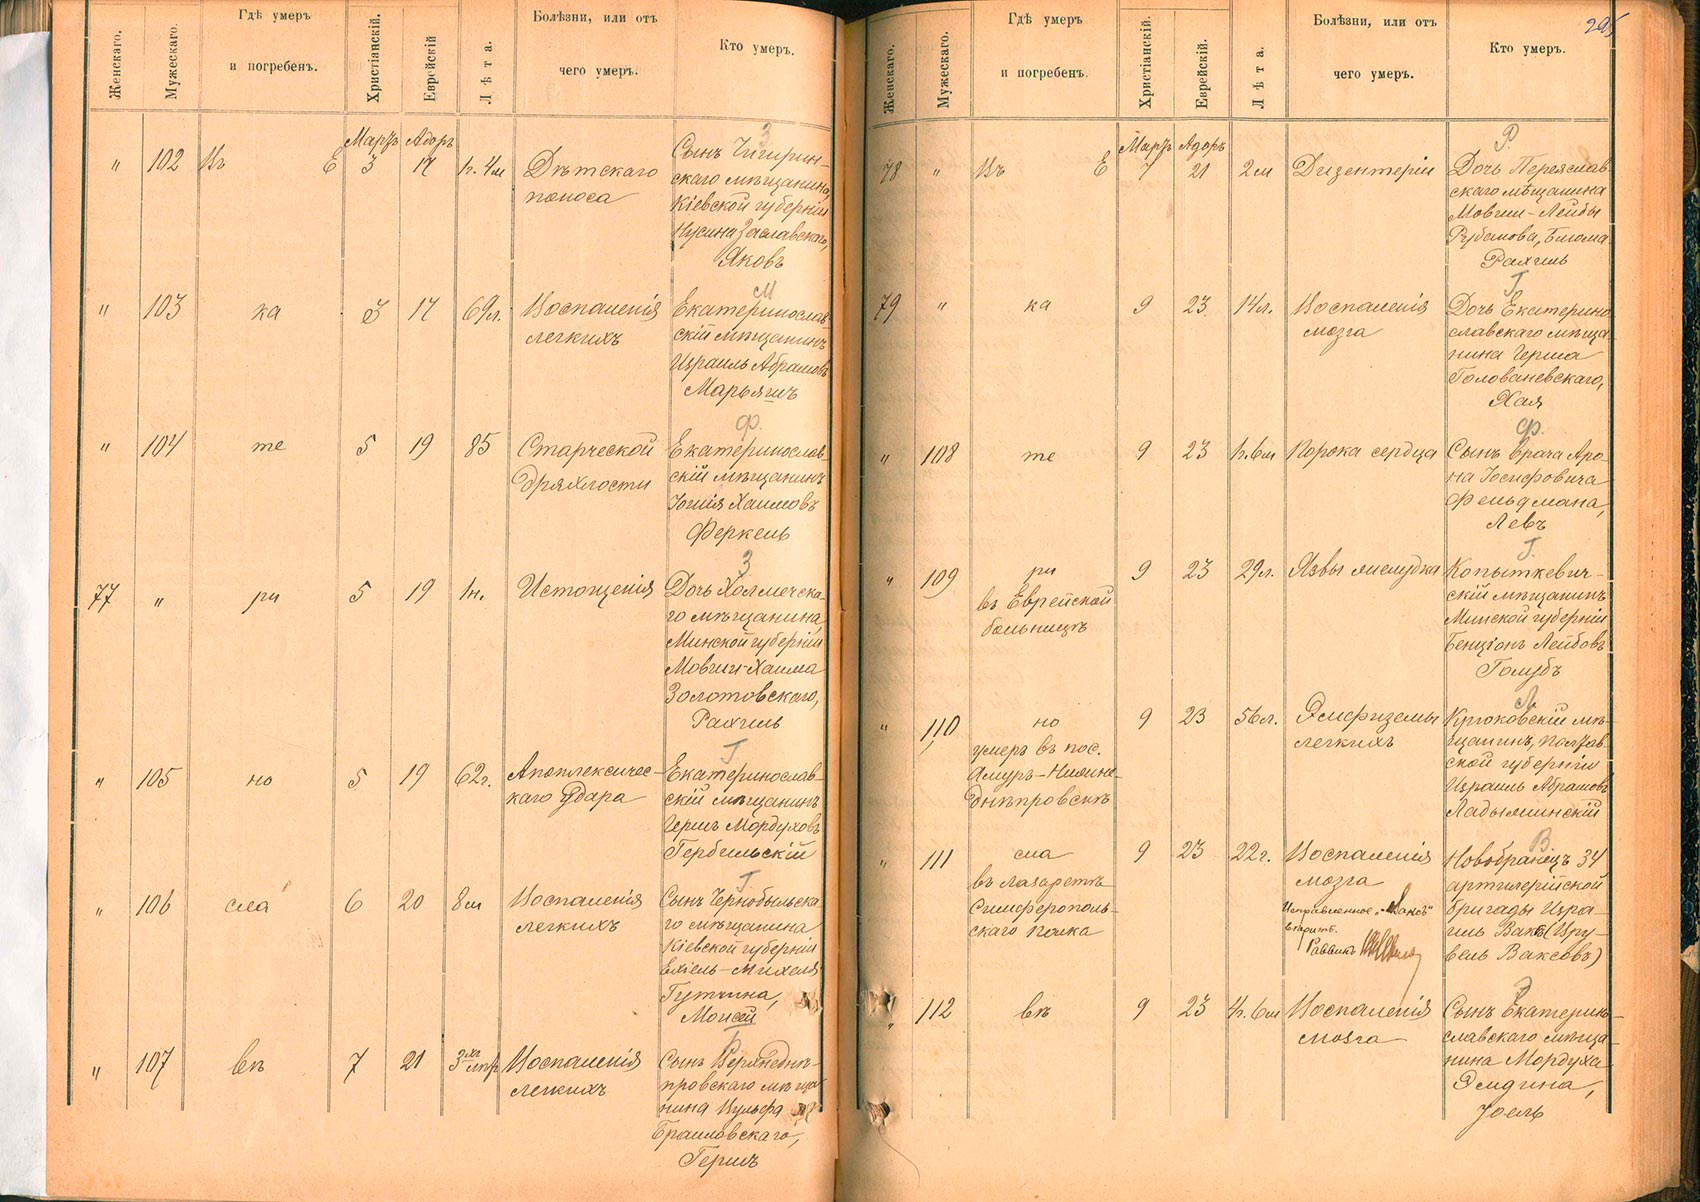 Женскаго.
Мужескаго.
Гдѣ умеръ
и погребенъ.
Христіанскій.
Еврейскій
Лѣта.
Болѣзни, или отъ
чего умеръ.
Кто умеръ.
Мартъ Адоръ
" 102 Въ Е 3 17 1г. 4м Дѣтскаго
поноса
З
Сынъ Чигирин-
скаго мѣщанина,
Кіевской губерніи
Нусина Заславскаго,
Яковъ
" 103 ка 3 17 69л. Воспаленія
легкихъ
М
Екатеринослав-
скій мѣщанинъ
Израиль Абрамовъ
Марьягинъ
" 104 те 5 19 85 Старческой
дряхлости
Ф.
Екатеринослав-
скій мѣщанинъ
Хаимовъ
Феркель
77 " ри 5 19 1н. Истощенія
З
Дочь Холмечска-
го мѣщанина,
Минской губерніи
Мовши-Хаима
Золотовскаго,
Рахиль
" 105 но 5 19 62г. Апоплексичес-
каго удара
Г
Екатеринослав-
скій мѣщанинъ
Гершъ Мордуховъ
Гербильскій
" 106 сла 6 20 8м Воспаленія
легкихъ
Г
Сынъ Чернобыльска-
го мѣщанина
Кіевской губерніи
Ехіель-Михеля
Гутмина,
Моисей
" 107 вѣ 7 21 Воспаленія
легкихъ
Б
Сынъ Верхнеднѣ-
провскаго мѣща-
нина Вульфа
Браиловскаго,
Гершъ
295
Женскаго.
Мужескаго.
Гдѣ умеръ
и погребенъ.
Христіанскій.
Еврейскій.
Лѣта.
Болѣзни, или отъ
чего умеръ.
Кто умеръ.
Мартъ Адоръ
78 " Въ Е 7 21 2м Дизентеріи
Р.
Дочь Переяслав-
скаго мѣщанина
Мовши-Лейбы
Рубанова,
Рахиль
79 " ка 9 23 14л. Воспаленія
мозга
Г.
Дочь Екатерино-
славскаго мѣща-
нина Герша
Голованевскаго,
Хая
" 108 те 9 23 1г. 6м Порока сердца
Ф.
Сынъ врача Аро-
на Іосифовича
Фельдмана,
Левъ
" 109 ри 9 23 29л. Язвы желудка
въ Еврейской
больницѣ
Г.
Копыткевич-
скій мѣщанинъ
Минской губерніи
Бенціонъ Лейбовъ
Голубъ
" 110 но 9 23 56л. Эмфиземы
легкихъ
умеръ въ пос.
Амуръ-Нижне-
днѣпровскѣ
Л
Крюковскій мѣ-
щанинъ, Полтав-
ской губерніи
Израиль Абрамовъ
Ладыжинскій
" 111 сла 9 23 22г. Воспаленія
мозга
въ лазаретѣ
Симферополь-
скаго полка
Исправленное „Ваксъ"
вѣрить.
Раввинъ
В.
Новобранецъ 34
артилерійской
бригады Изра-
иль Ваксъ (Сру-
вель Ваксовъ)
" 112 вѣ 9 23 4г. 6м Воспаленія
мозга
Э
Сынъ Екатерино-
славскаго мѣща-
нина Мордуха
Элидина,
Іоель